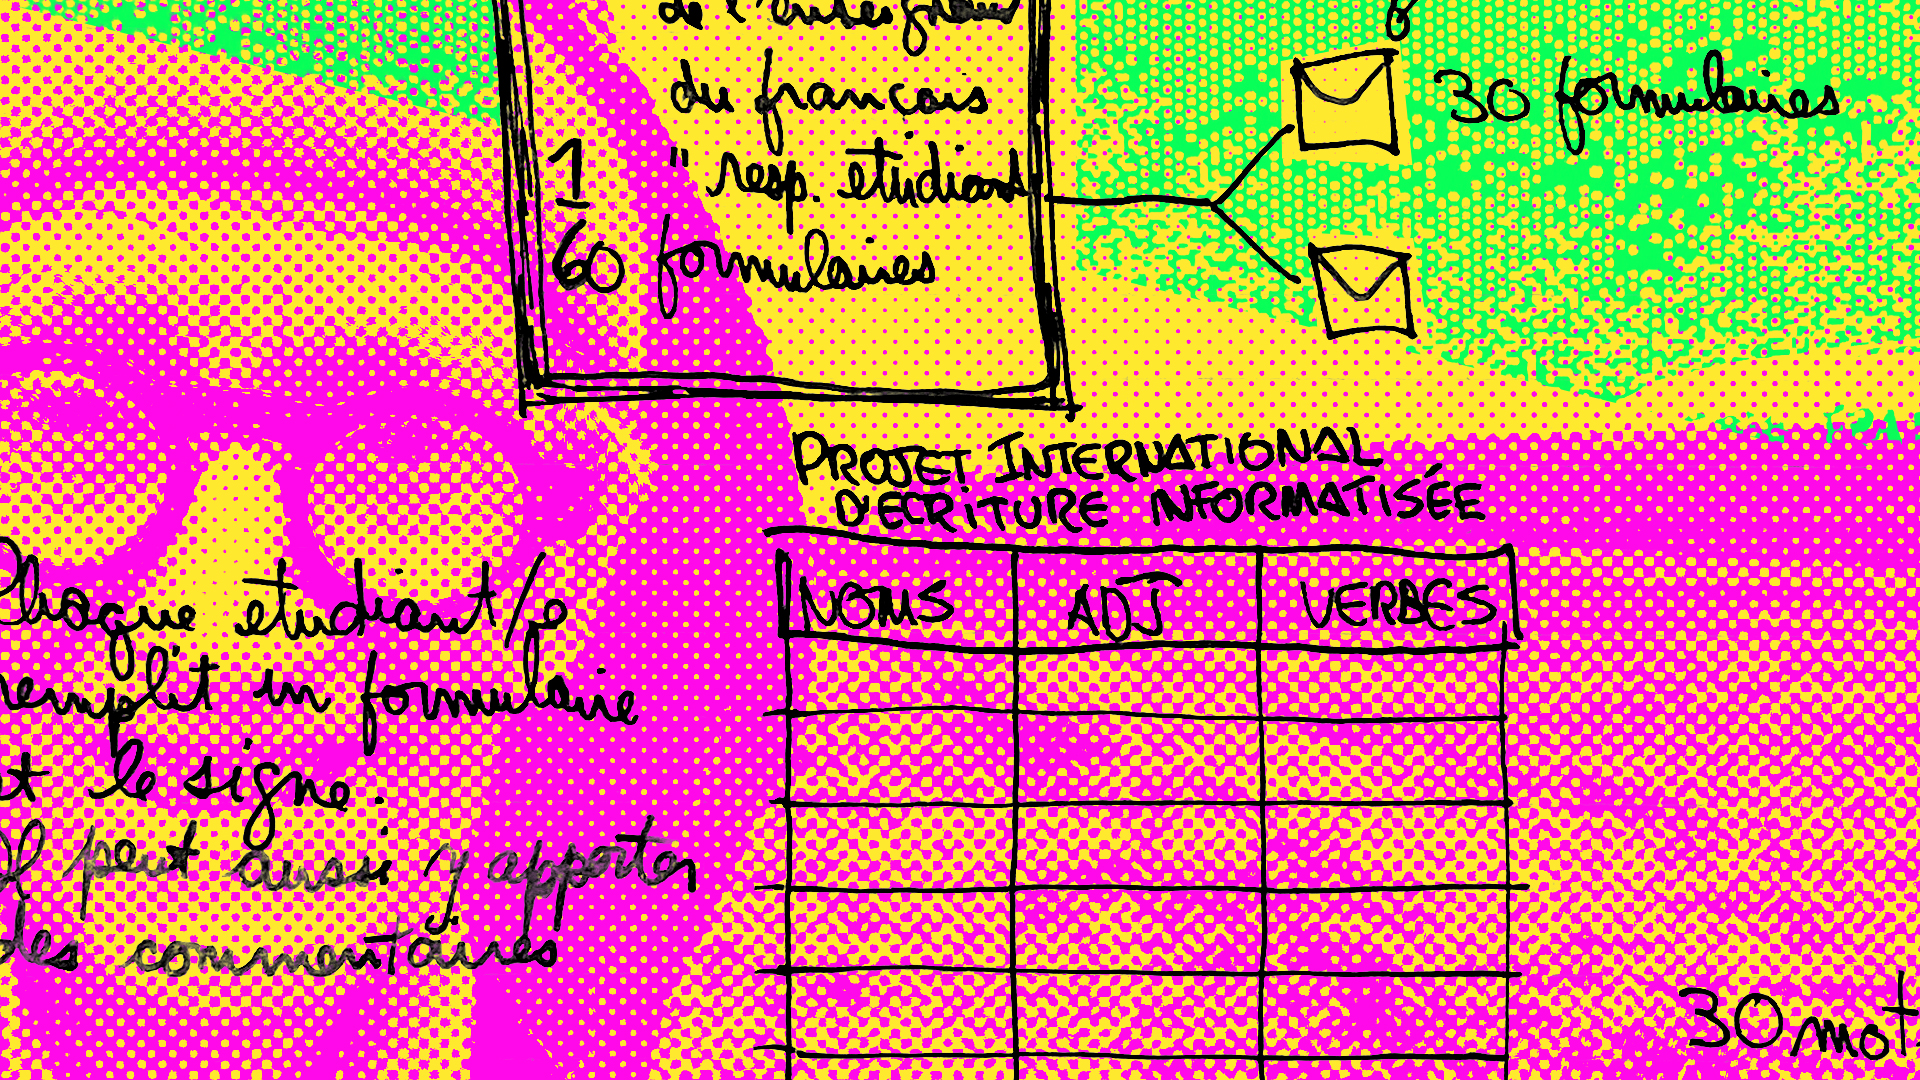 de l'enseignant
du français
1 " resp. etudiant
60 formulaires
30 formulaires
PROJET INTERNATIONAL
D'ECRITURE INFORMATISÉE
NOMS ADJ VERBES
Chaque etudiant/e
remplit un formulaire
et le signe.
Il peut aussi y apporter
des commentaires
30 mot